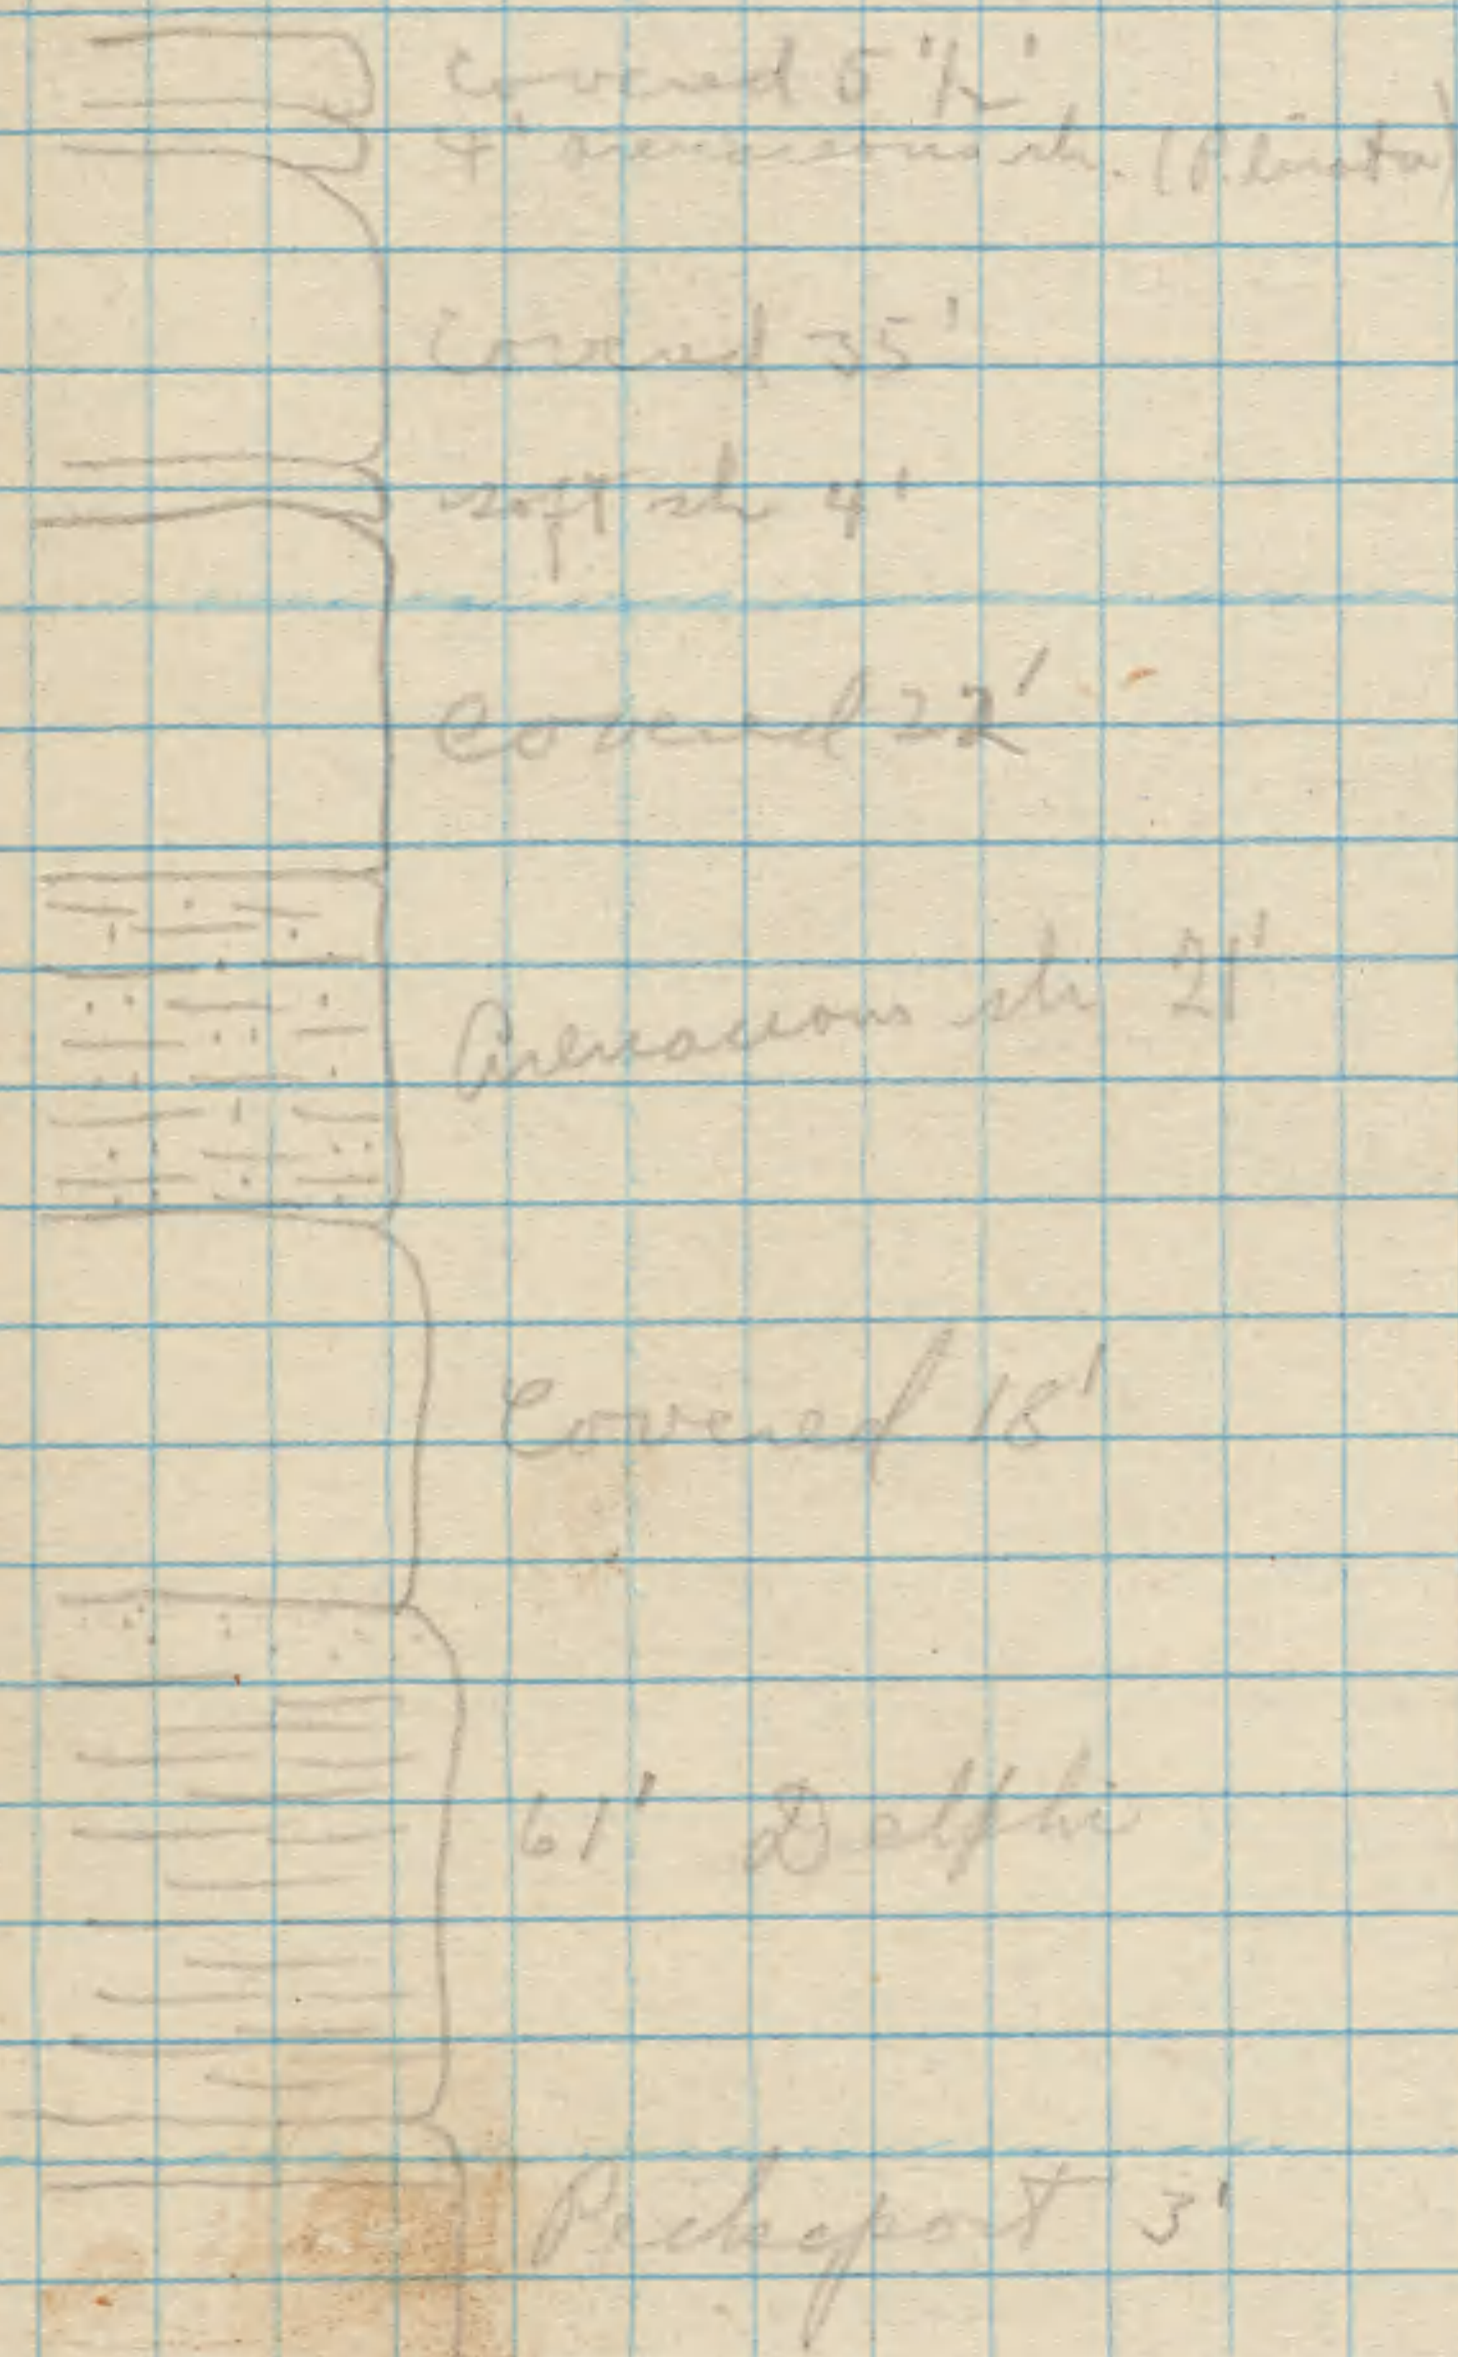 Covered 5 1/2'
4' arenaceous sh. (P. lirata)
Covered 35'
soft sh 4'
Covered 22'
Arenaceous sh 21'
Covered 18'
61' Delphi
Pecksport 3'